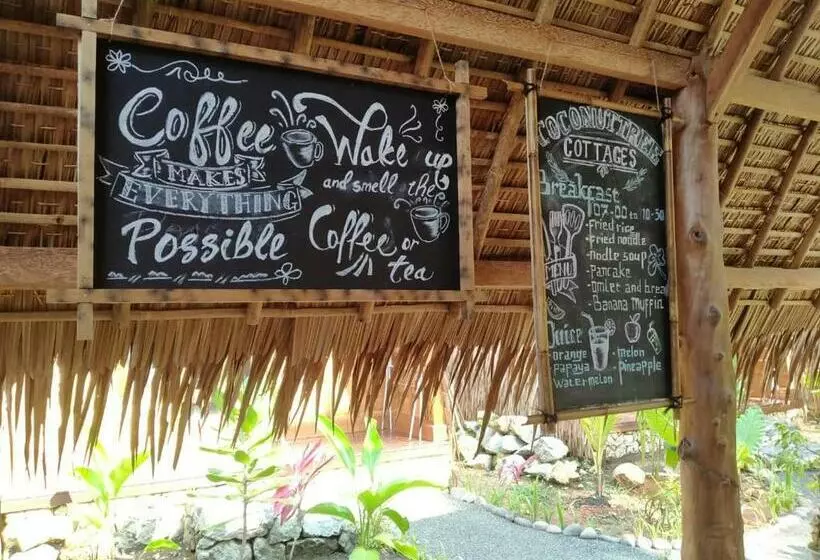 Coffee
MAKES
EVERYTHING
Possible
Wake up
and smell the
Coffee or
tea
COCONUTTREE
COTTAGES
Breakfast
07.00 to 10.30
- fried rice
- fried noodle
- noodle soup
- pancake
- omlet and bread
- Banana muffin
MENU
Juice
orange melon
papaya pineapple
watermelon